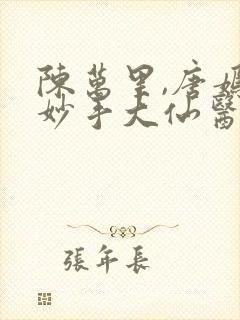 陳萬里,唐媽
妙手大仙醫
張年長